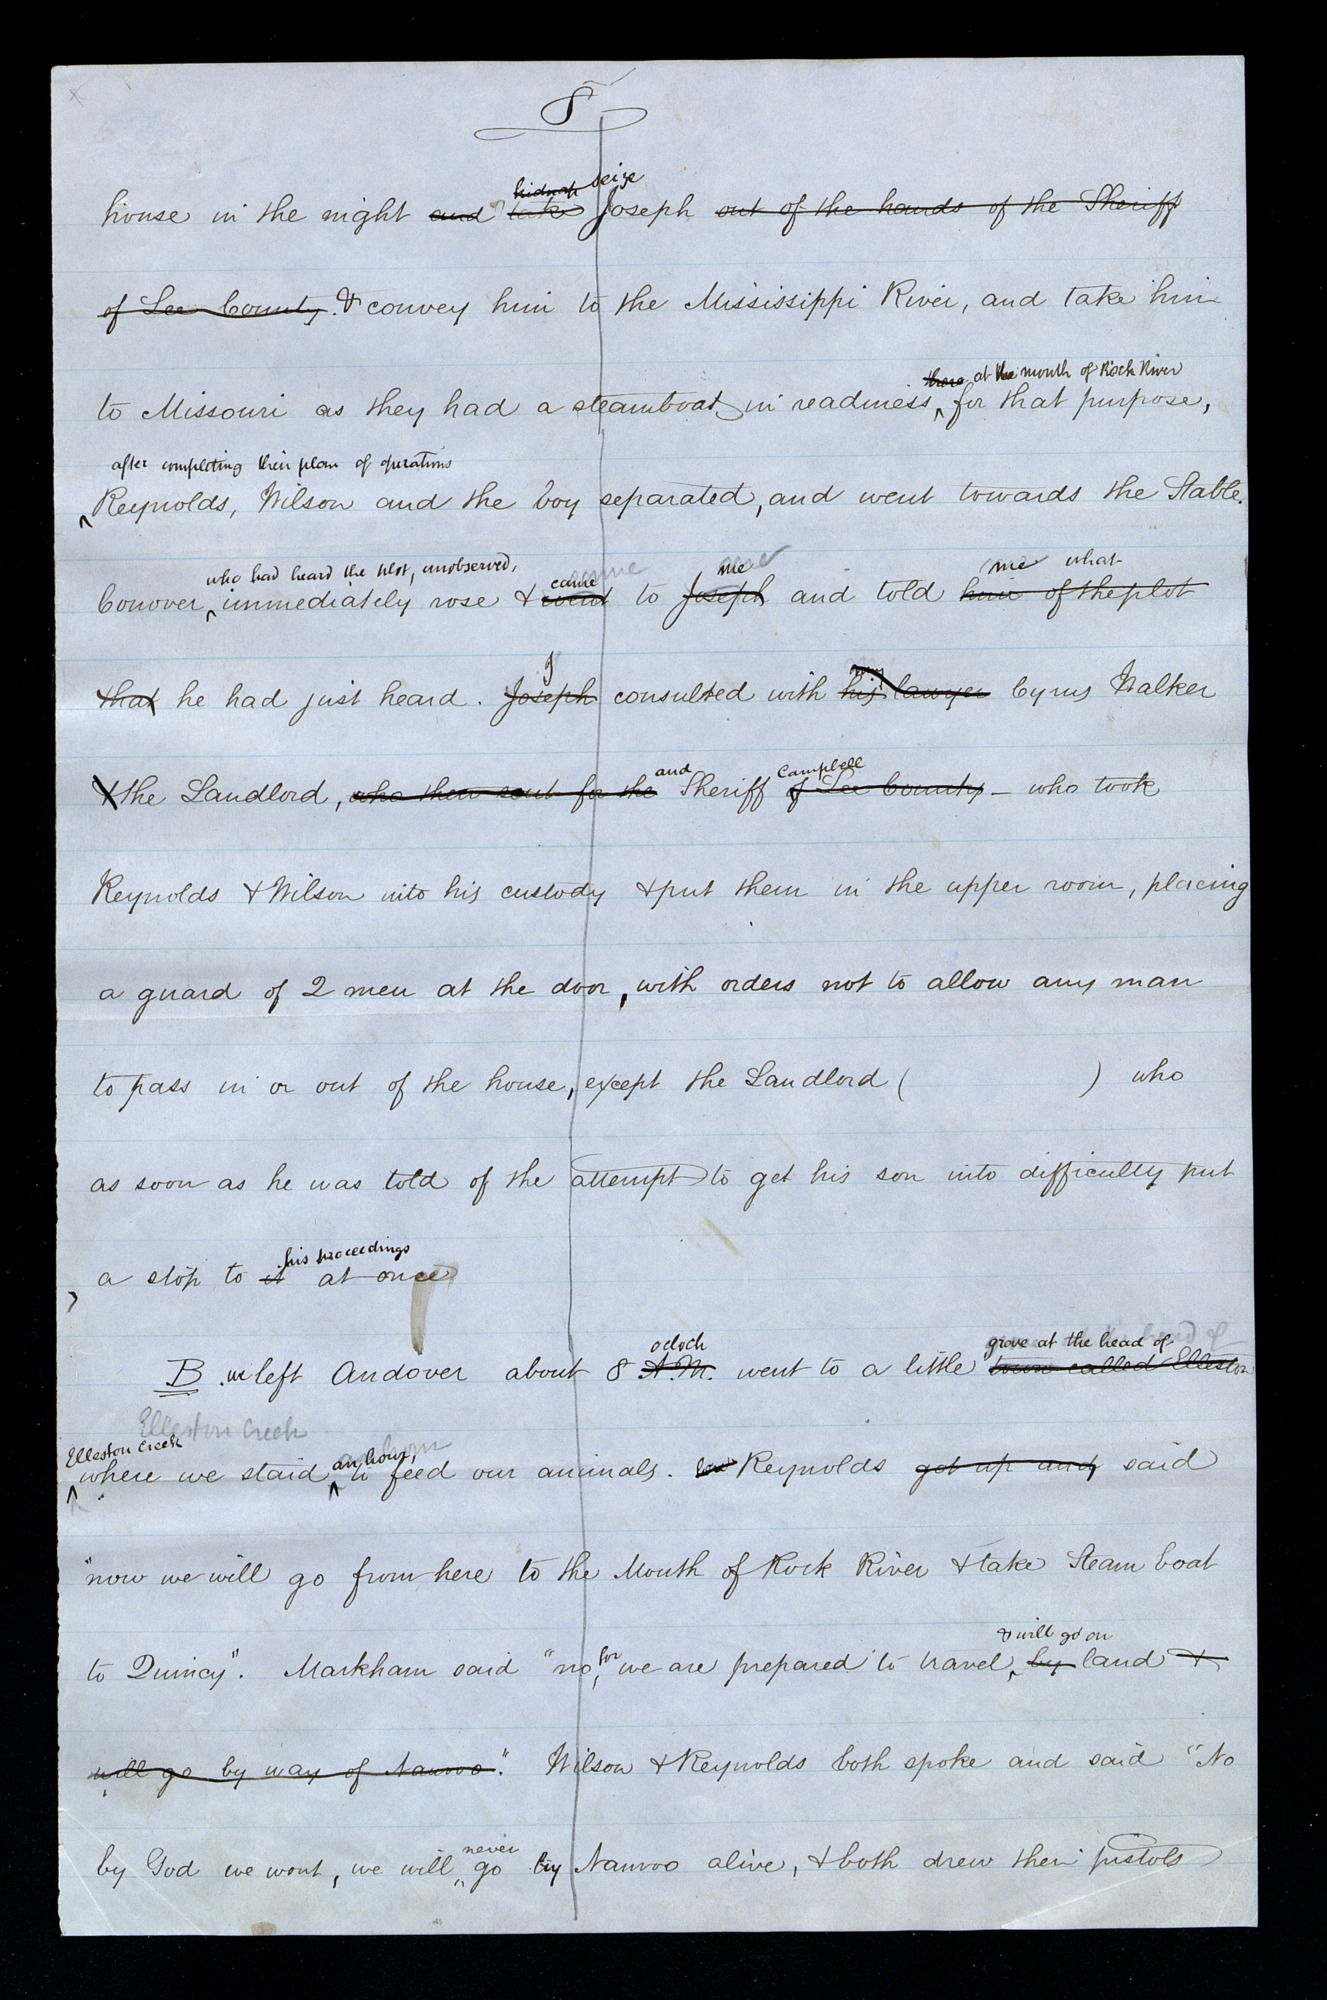 8
kidnap seize
house in the night and take Joseph out of the hands of the Sheriff
of Lee County. & convey him to the Mississippi River, and take him
there at the mouth of Rock River
to Missouri as they had a steamboat in readiness ^ for that purpose,
after completing their plan of operations
^ Reynolds, Wilson and the boy separated, and went towards the Stable.
who had heard the plot, unobserved, came me me what
Conover ^ immediately rose & went to Joseph and told him of the plot
I my
that he had just heard. Joseph consulted with his lawyer Cyrus Walker
and Campbell
& the Landlord, who then sent for the Sheriff of Lee County – who took
Reynolds & Wilson into his custody & put them in the upper room, placing
a guard of 2 men at the door, with orders not to allow any man
to pass in or out of the house, except the Landlord ( ) who
as soon as he was told of the attempt to get his son into difficulty put
his proceedings
a stop to it at once
oclock grove at the head of
B we left Andover about 8 A.M. went to a little town called Elleston
Elleston Creek
Elleston Creek an hour,
^ where we staid ^ to feed our animals. Reynolds got up and said
"now we will go from here to the Mouth of Rock River & take Steam boat
for & will go on
to Quincy". Markham said "no, ^ we are prepared to travel ^ by land &
will go by way of Nauvoo". Wilson & Reynolds both spoke and said "No
never
by God we wont, we will ^ go by Nauvoo alive, & both drew their pistols